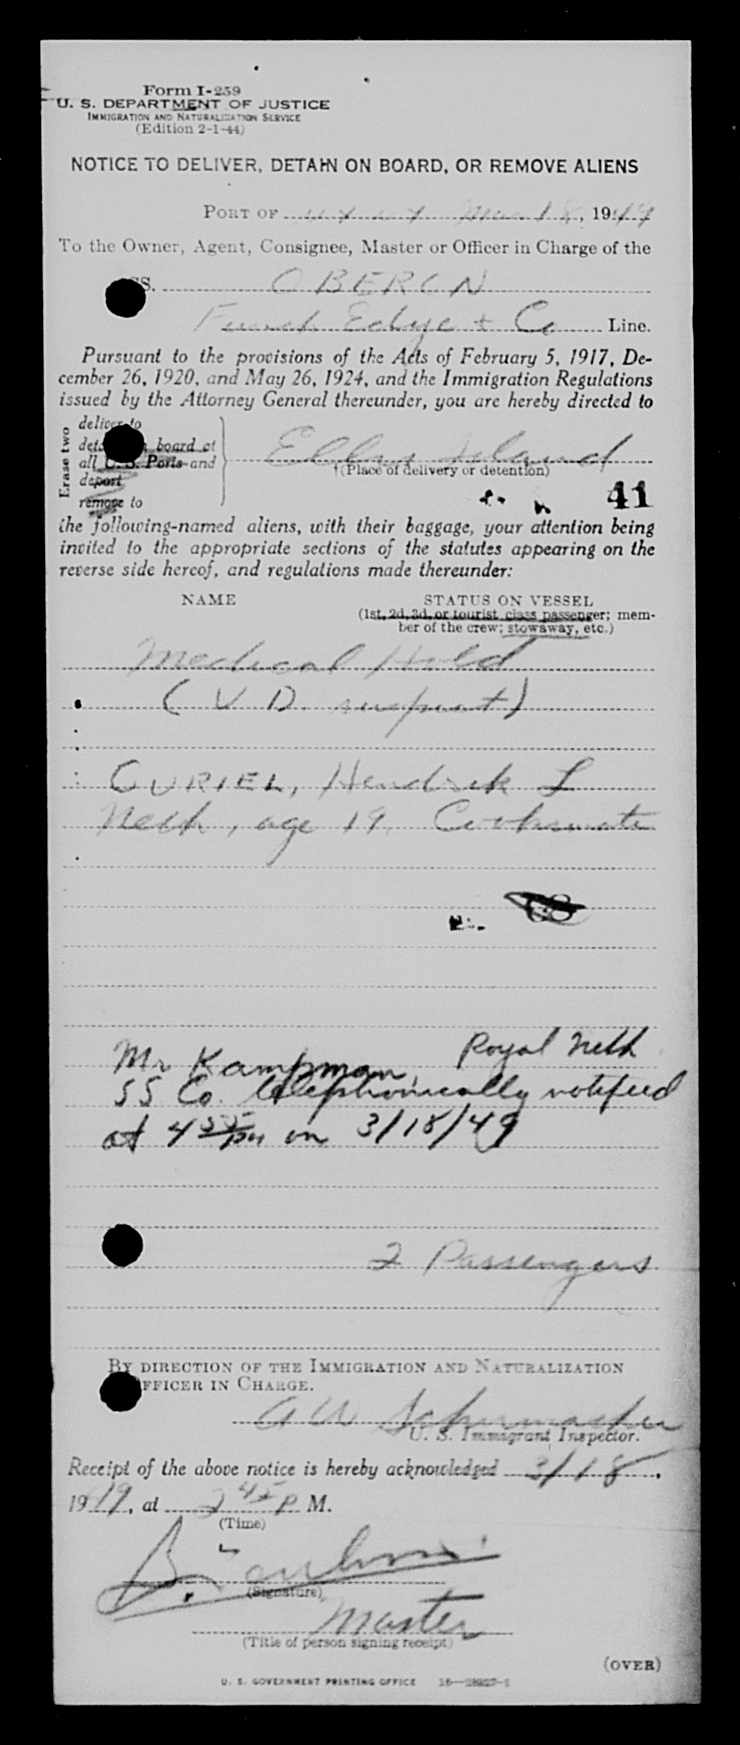 Form I-259
U. S. DEPARTMENT OF JUSTICE
IMMIGRATION AND NATURALIZATION SERVICE
(Edition 2-1-44)
NOTICE TO DELIVER, DETAIN ON BOARD, OR REMOVE ALIENS
PORT OF Mar 18, 1949
To the Owner, Agent, Consignee, Master or Officer in Charge of the
SS. OBERON
Funch Edye & Co Line.
Pursuant to the provisions of the Acts of February 5, 1917, De-
cember 26, 1920, and May 26, 1924, and the Immigration Regulations
issued by the Attorney General thereunder, you are hereby directed to
Erase two
deliver to
board at
all U. S. Ports and
deport
remove to
Ellis Island
(Place of delivery or detention)
41
the following-named aliens, with their baggage, your attention being
invited to the appropriate sections of the statutes appearing on the
reverse side hereof, and regulations made thereunder:
NAME STATUS ON VESSEL
(1st, 2d, 3d, or tourist class passenger; mem-
ber of the crew; stowaway, etc.)
Medical Hold
(V D. suspect)
CURIEL, Hendrik L
Neth, age 19,
68
Mr Kampman, Royal Neth
SS Co. telephonically notified
at 4 55 pm on 3/18/49
2 Passengers
BY DIRECTION OF THE IMMIGRATION AND NATURALIZATION
OFFICER IN CHARGE.
A W Schumacher
U. S. Immigrant Inspector.
Receipt of the above notice is hereby acknowledged 3/18,
1949, at 2 45 P M.
(Time)
(Signature)
Master
(Title of person signing receipt)
(OVER)
U. S. GOVERNMENT PRINTING OFFICE